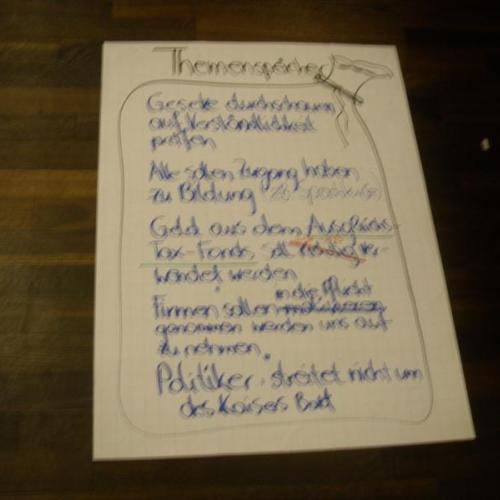 Themenspeicher
Gesetze durchschauen
auf Verständlichkeit
prüfen
Alle sollen Zugang haben
zu Bildung
Geld aus dem Ausgleichs-
Tax-Fonds soll ver-
wendet werden
in die Pflicht
Firmen sollen
genommen werden uns auf
zu nehmen.
Politiker, streitet nicht um
des Kaisers Bart